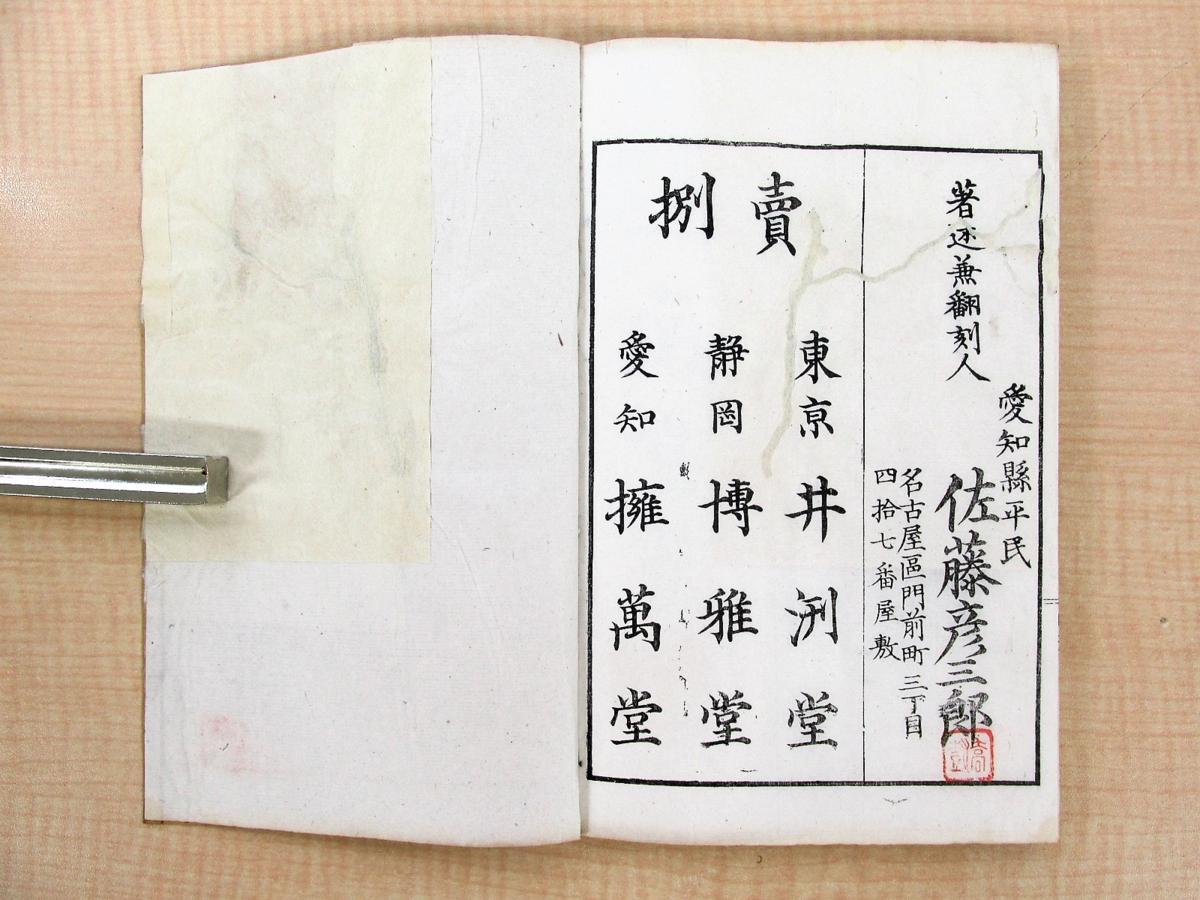 著述兼翻刻人
愛知縣平民
佐藤彦三郎
名古屋區門前町三丁目
四拾七番屋敷
賣捌
東京 井洌堂
静岡 博雅堂
愛知 擁萬堂